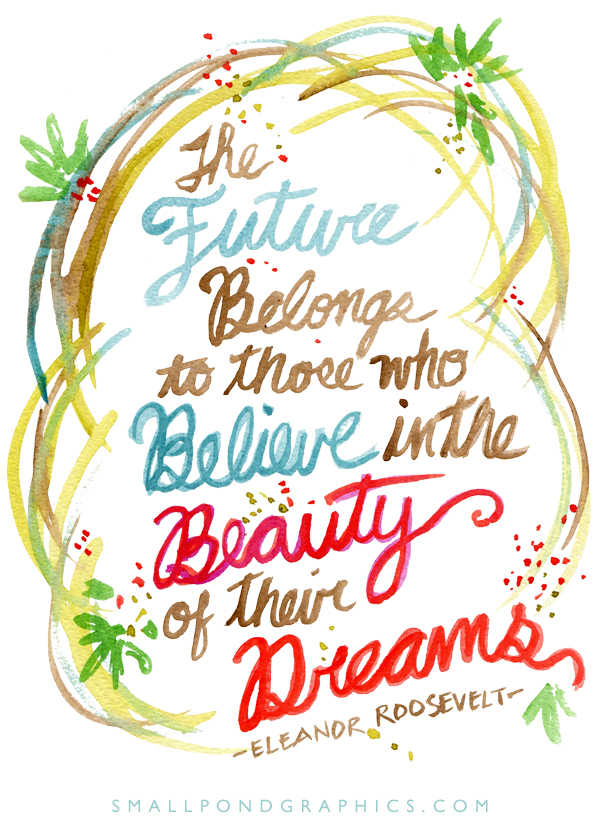 The
Future
Belongs
to those who
Believe in the
Beauty
of their
Dreams
-ELEANOR ROOSEVELT-
SMALLPONDGRAPHICS.COM